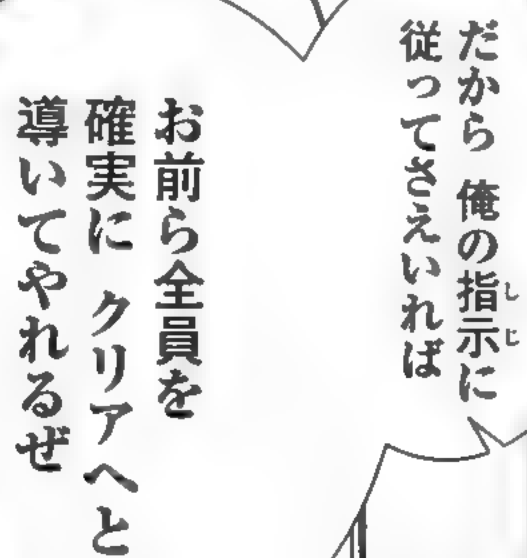 だから 俺の指示に
従ってさえいれば
お前ら全員を
確実に クリアへと
導いてやれるぜ